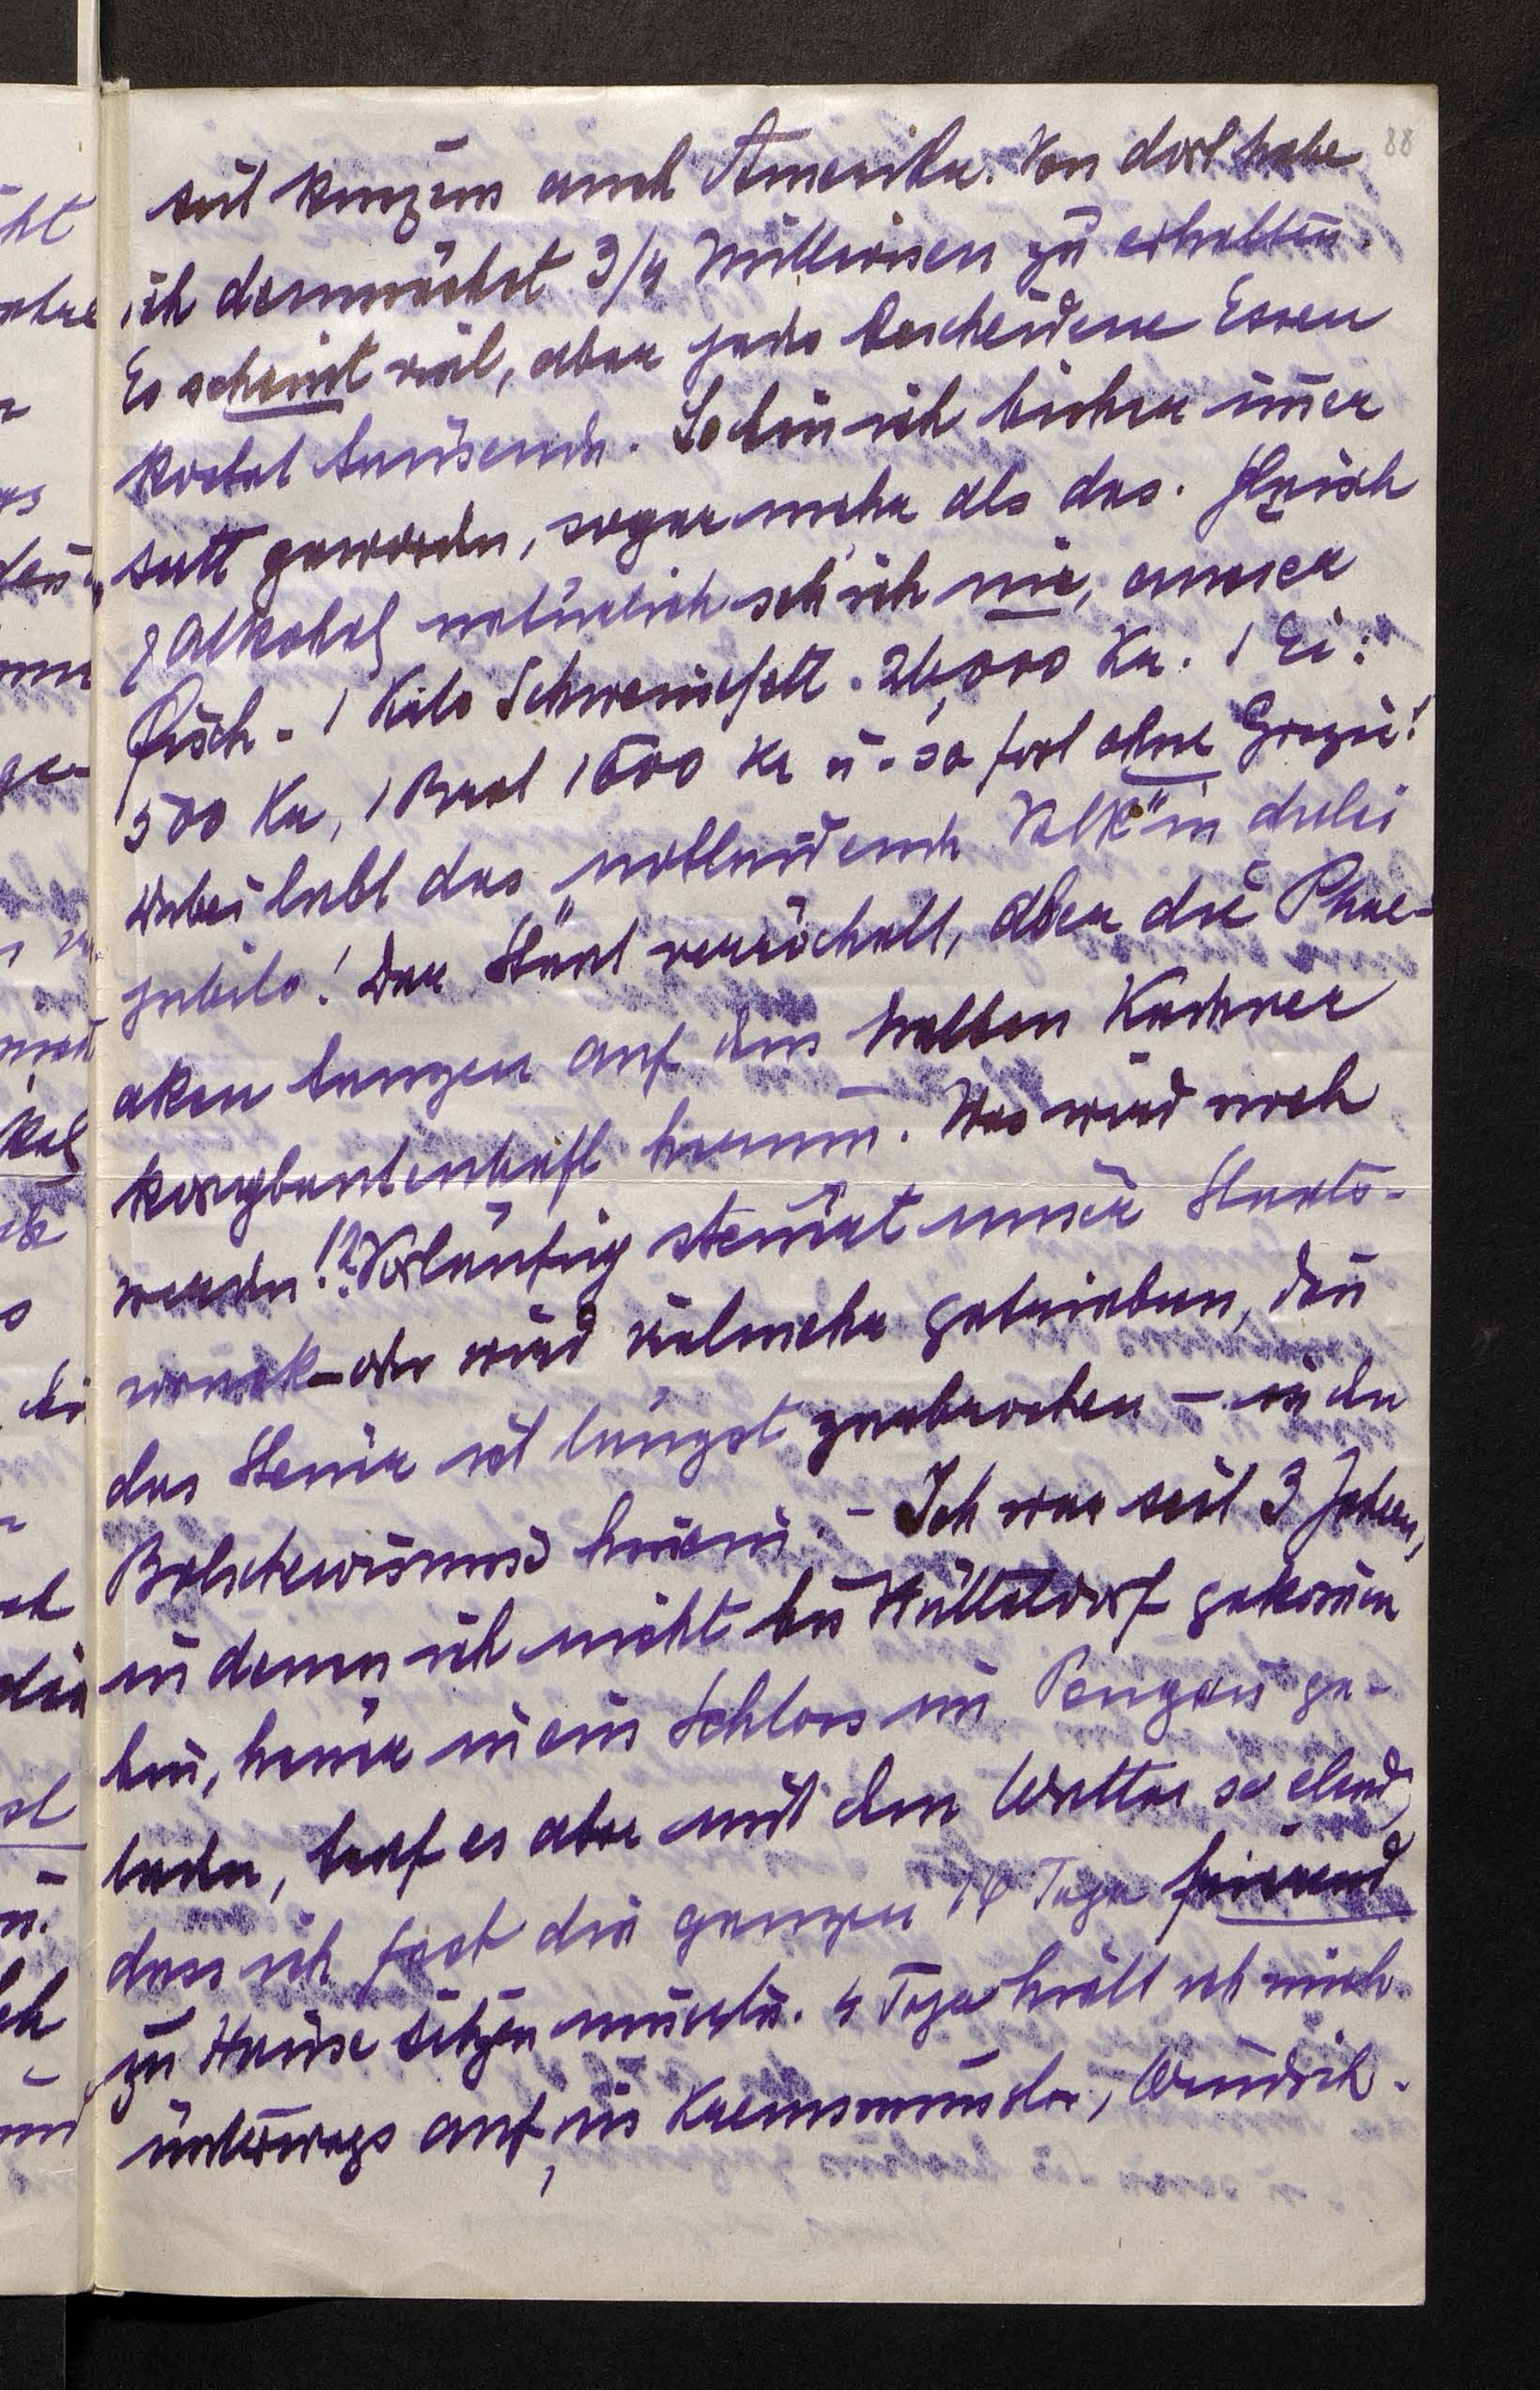 88
seit kurzem auch Amerika. Von dort habe
ich demnächst 3/4 Millionen zu erhalten.
Es scheint viel, aber jedes bescheidene Essen
kostet Tausende. So bin ich bisher im̅er
satt geworden, sogar mehr als das. Fleisch
[Alkohol] natürlich seh' ich nie, ausser
Fisch. 1 Kilo Schweinefett . 26,000 Kr. 1 Ei:
500 Kr, 1 Brot 1600 Kr u. so fort ohne Grazie!
Dabei lebt das „notleidende Volk" in dulci
jubilo! Der Staat verröchelt, aber die Phae-
aken tanzen auf den halben Kadaver
korybantenhaft herum. Was wird noch
werden!? Vorläufig steuert unser Staats-
wrack – oder wird vielmehr getrieben, den̅
das Steuer ist längst zerbrochen – in den
Bolschewismus hinein. – Ich war seit 3 Jahren,
in denen ich nicht bis Hütteldorf gekom̅en
bin, heuer in ein Schloss im Pongau ge-
laden, traf es aber mit dem Wetter so elend,
dass ich fast die ganzen 14 Tage frierend
zu Hause sitzen musste. 4 Tage hielt ich mich
unterwegs auf, in Kremsmünster, Windisch-